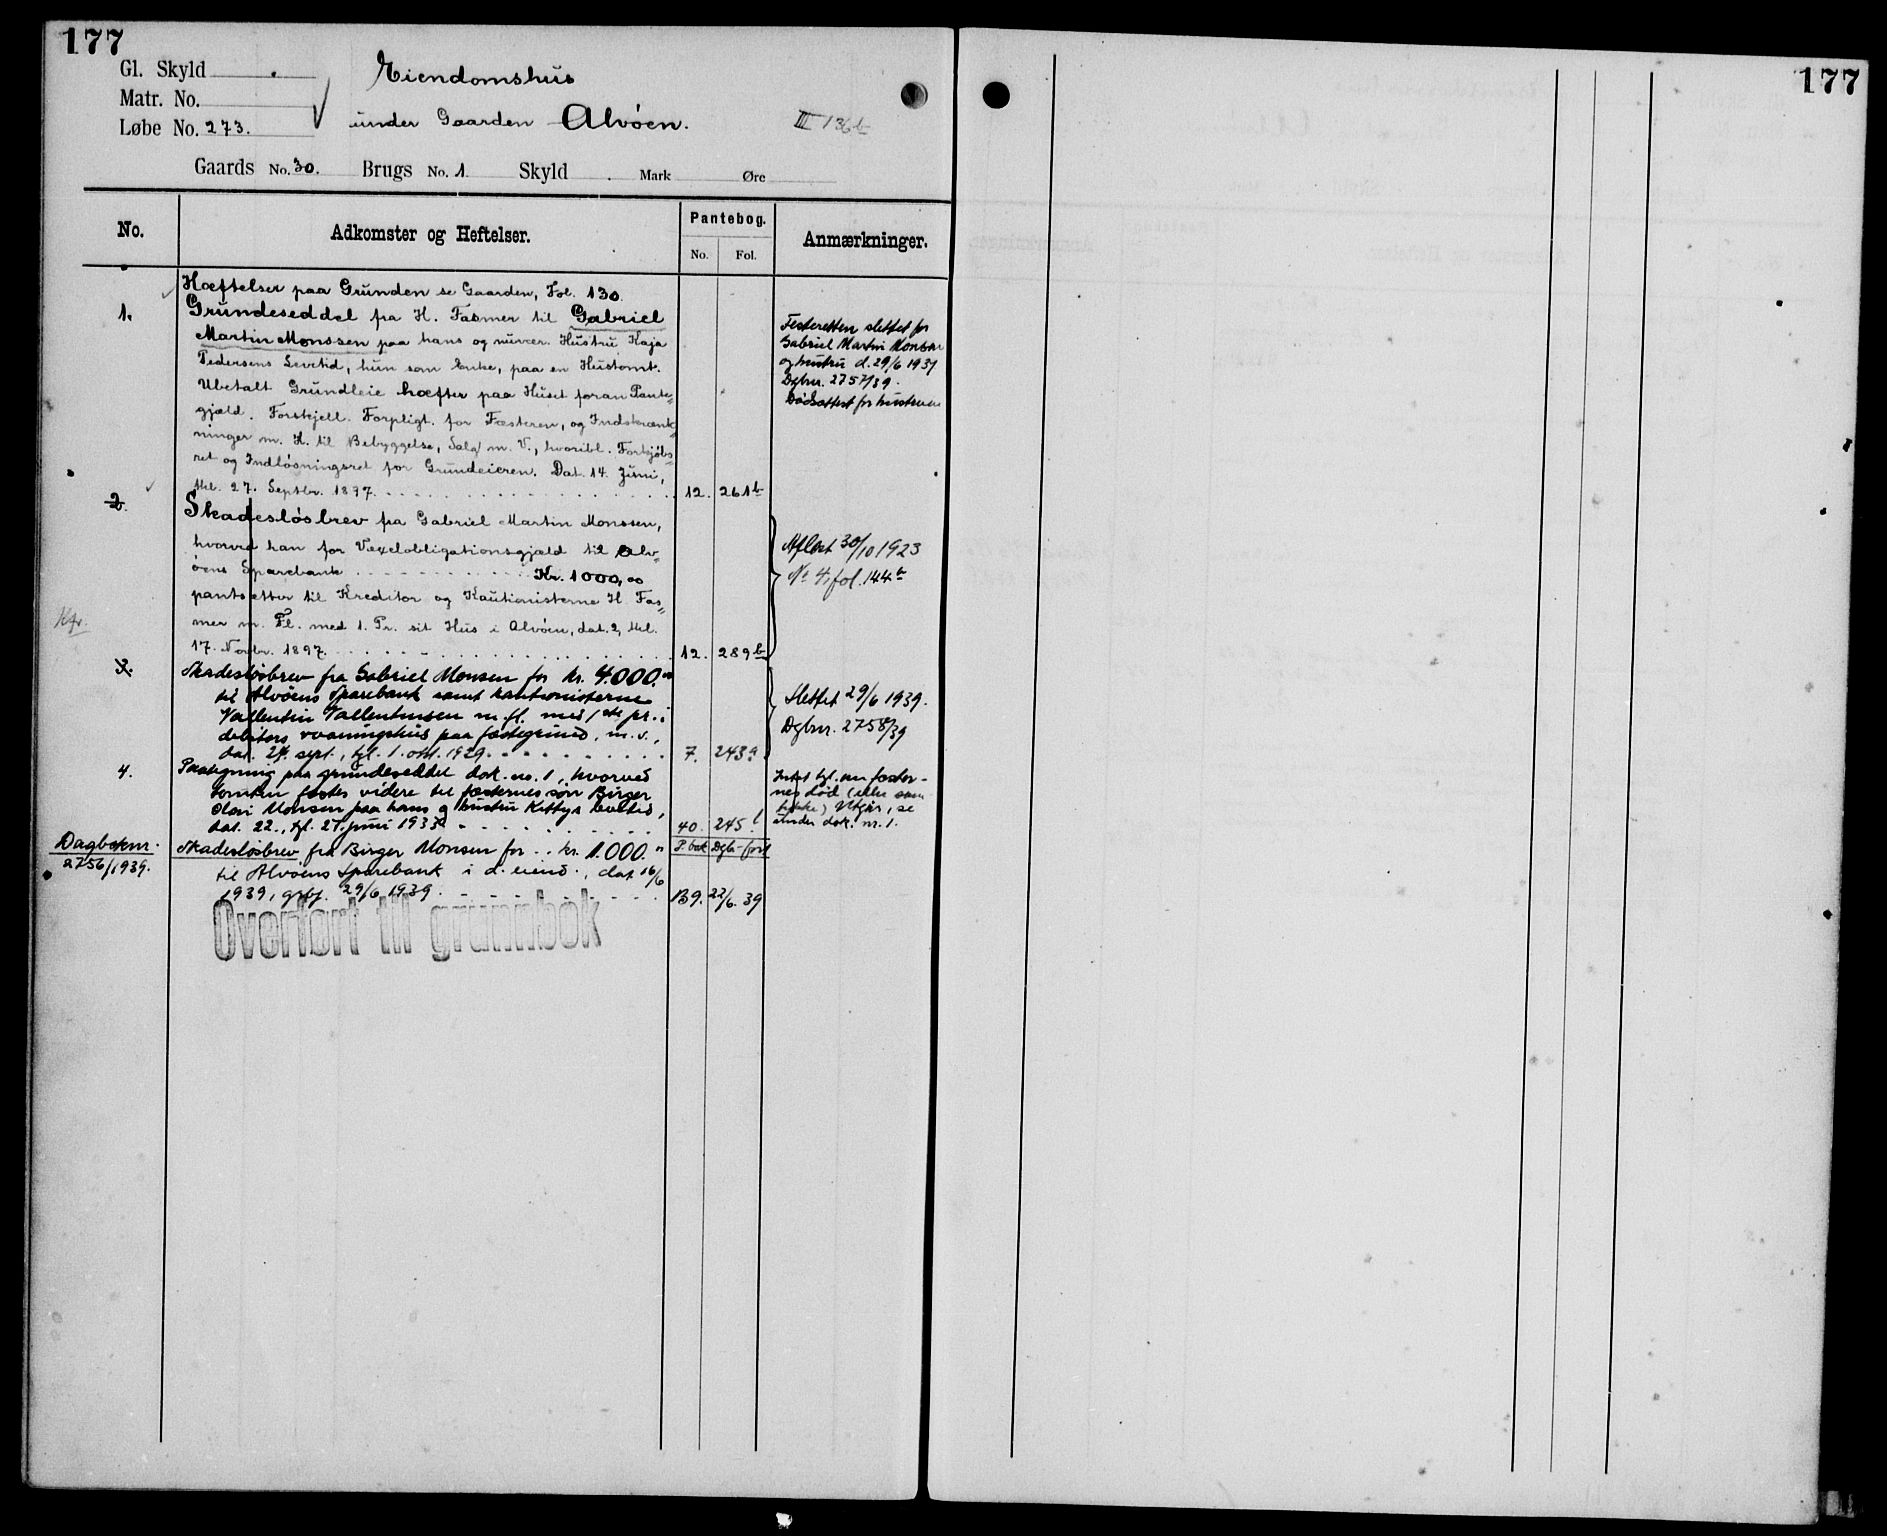 177
177
Gl. Skyld
Matr. No.
Løbe No. 273.
Eiendomshus
under Gaarden Alvöen.
III 136b
Gaards No. 30. Brugs No. 1 Skyld Mark Øre
No. Adkomster og Heftelser. Pantebog. Anmærkninger.
No. Fol.
Hæftelser paa Grunden se Gaarden, Fol. 130.
1. Grundeseddel fra H. Fasmer til Gabriel
Martin Monssen paa hans og nuvær. Hustru Kaja
Pedersens Levetid, hun som Enke, paa en Hustomt.
Ubetalt Grundleie hæfter paa Huset foran Pante-
gjæld. Forskjell. Forpligt. for Fæsteren, og Indskrænk-
ninger m. H. til Bebyggelse, Salg m. V., hvoribl. Forkjöbs-
ret og Indlösningsret for Grundeieren. Dat. 14. Juni,
thl. 27. Septbr. 1897. 12. 261b
Festeretten slettet for
Gabriel Martin Monsen
og hustru d. 29/6 1939
Dgbnr. 2757/39.
Dødsattest for hustruen
2. Skadeslösbrev fra Gabriel Martin Monssen,
hvorved han for Vexelobligationsgjæld til Alv-
öens Sparebank Kr. 1000,00
pantsætter til Kreditor og Kautionisterne H. Fas-
mer m. Fl. med 1. Pr. sit Hus i Alvöen, dat. 2, thl.
17. Novbr. 1897. 12. 289b
Aflæst 30/10 1923
No 4, fol. 144b
Kfr.
3. Skadesløsbrev fra Gabriel Monsen for kr. 4.000.00
til Alvøens Sparebank samt kautionisterne
Vallentin Vallentinsen m. fl. med 1ste pr. i
debitors vaaningshus paa fæstegrund, m. v.,
dat. 24. sept., tgl. 1. okt. 1929. 7. 243a
Slettet 29/6 1939.
Dgbnr. 2758/39
4. Paategning paa grundeseddel dok. no. 1, hvorved
tomten fæstes videre til fæsternes søn Birger
Olai Monsen paa hans og hustru Kittys levetid,
dat. 22., tgl. 27. juni 1933 40. 245b
Intet tgl. om fæster-
nes død
Utgår, se
under dok. nr. 1.
Dagboknr.
2756/1939.
P. bok Dgb-ført
Skadesløsbrev fra Birger Monsen for kr. 1.000.00
til Alvøens Sparebank i d. eiend., dat. 16/6
1939, 29/6 1939 B9. 22/6. 39
Overført til grunnbok